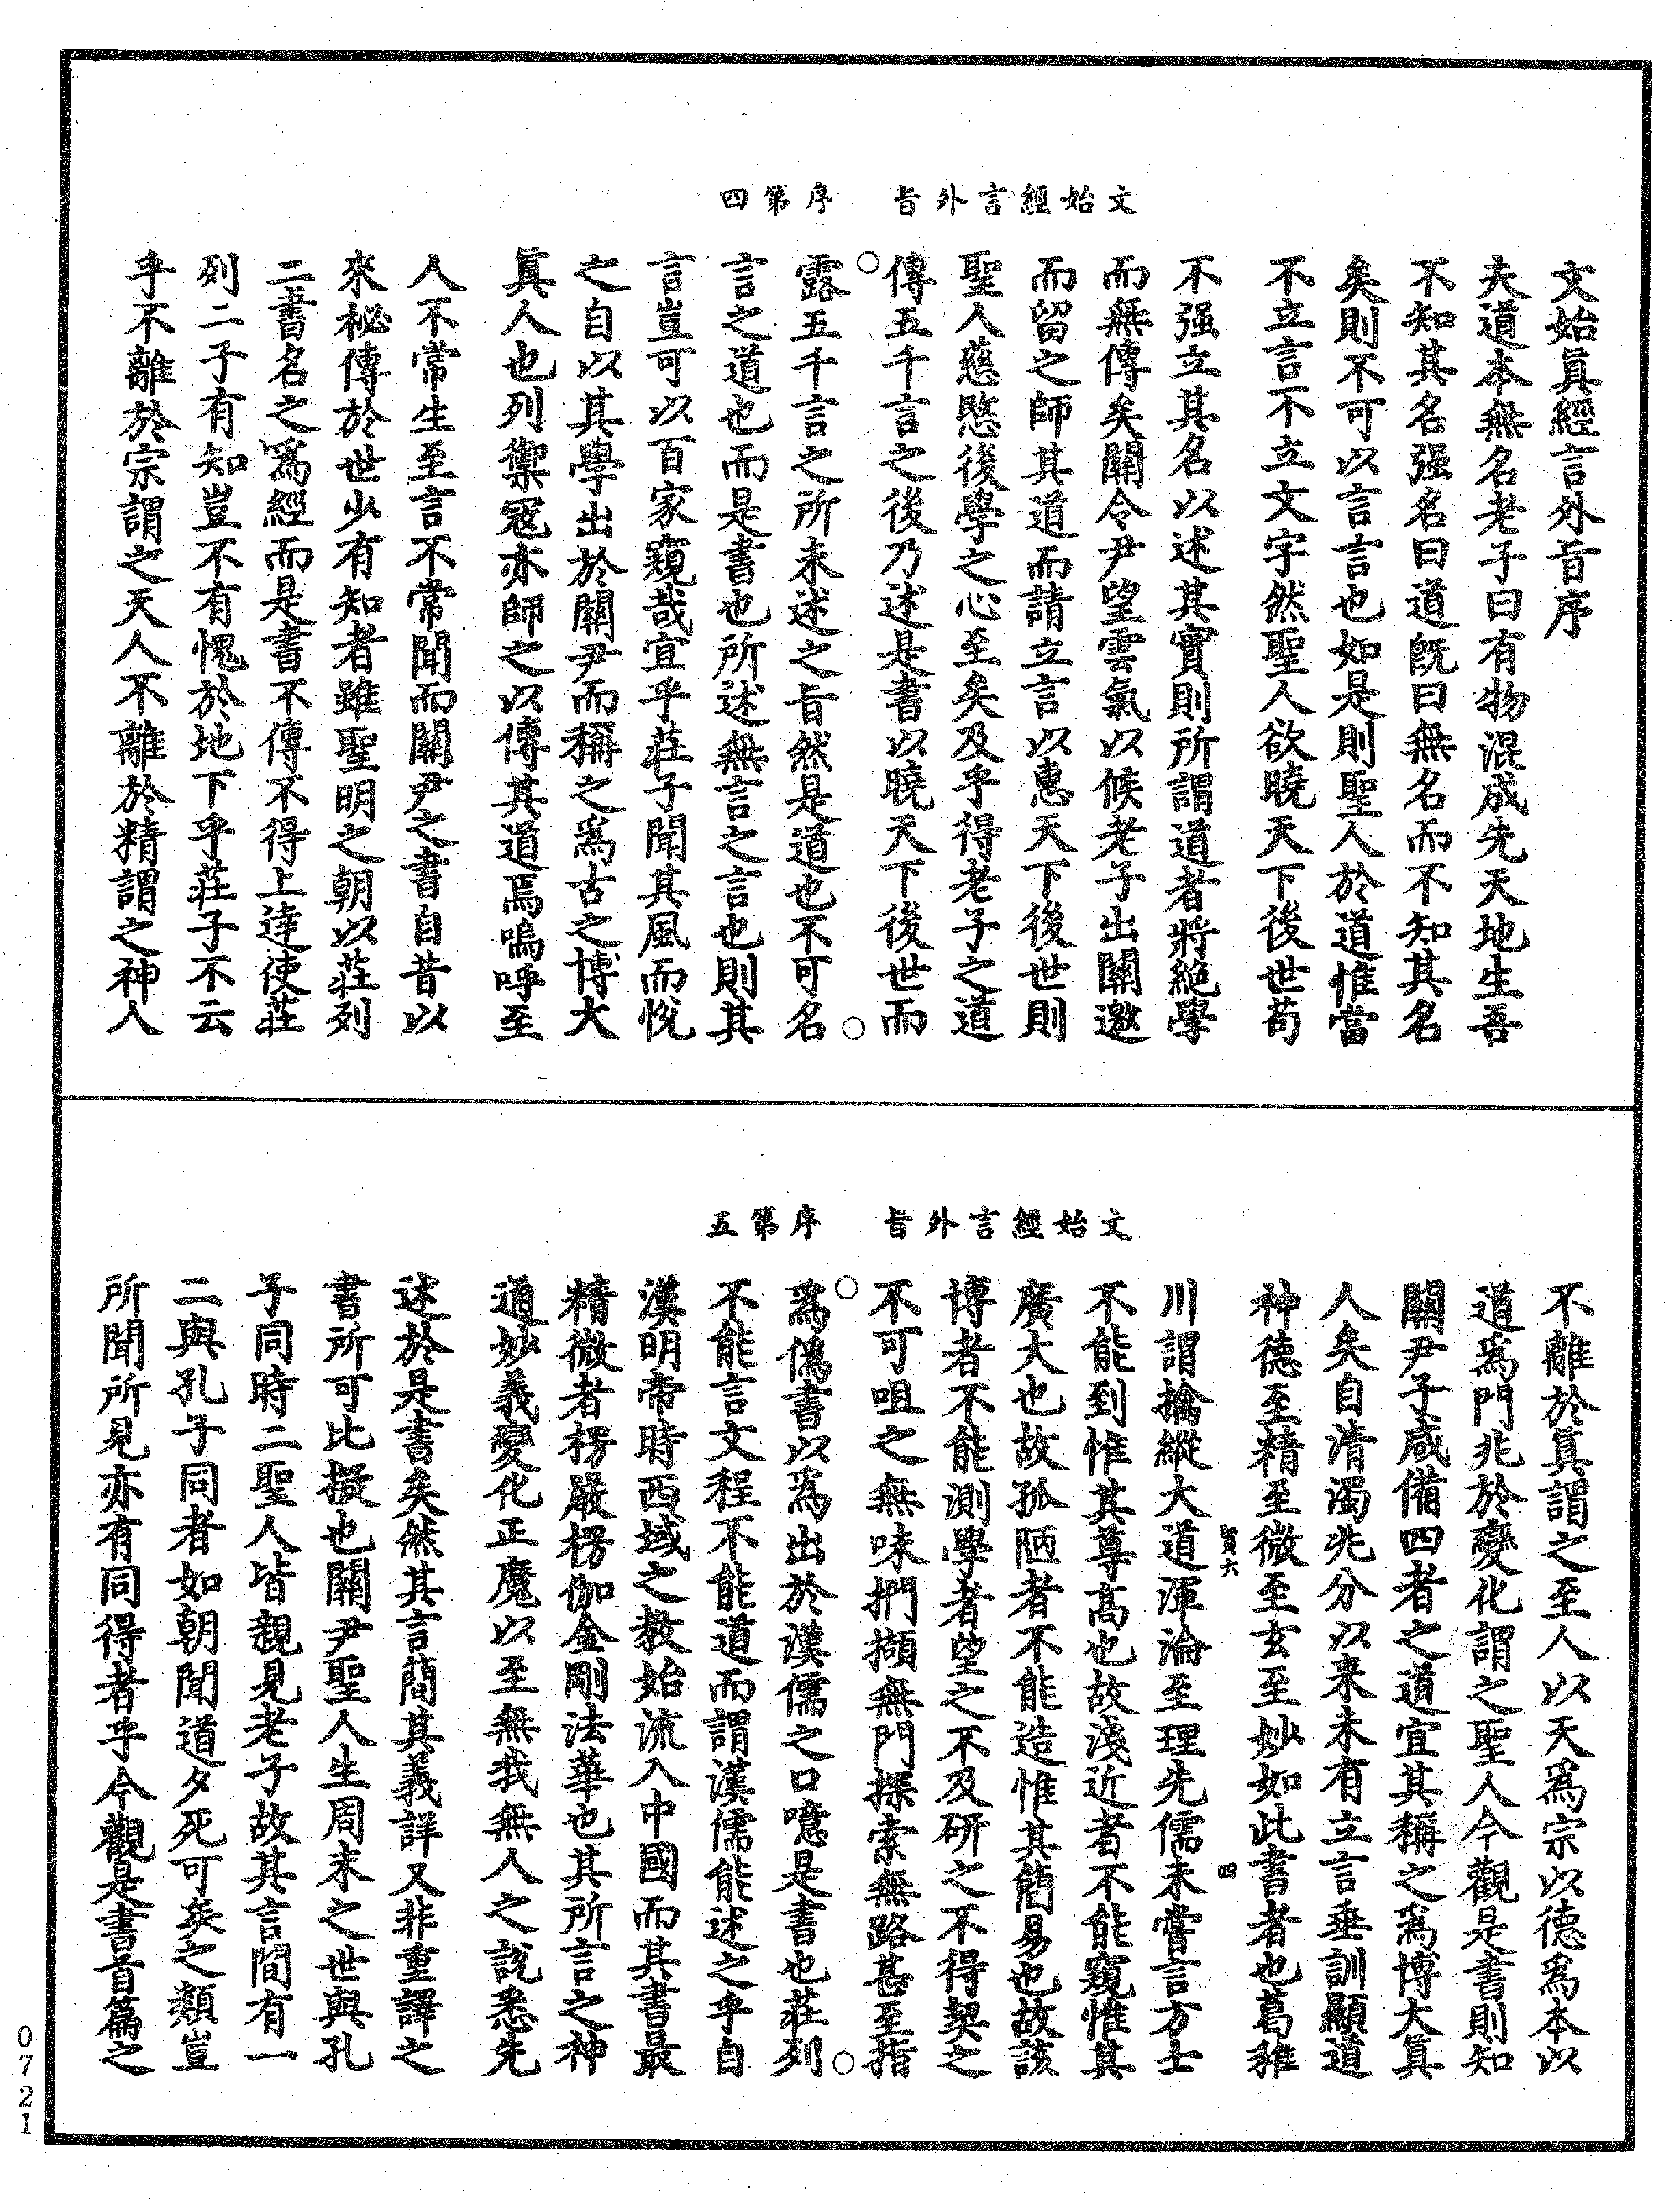 文始經言外旨　序第四
文始眞經言外旨序
夫道本無名老子曰有物混成先天地生吾
不知其名强名曰道旣曰無名而不知其名
矣則不可以言言也如是則聖人於道惟當
不立言不立文字然聖人欲曉天下後世苟
不强立其名以述其實則所謂道者將絶學
而無傳矣關令尹望雲氣以候老子出關邀
而留之師其道而請立言以惠天下後世則
聖人慈愍後學之心至矣及乎得老子之道
傳五千言之後乃述是書以曉天下後世而
露五千言之所未述之旨然是道也不可名
言之道也而是書也所述無言之言也則其
言豈可以百家窺哉宜乎莊子聞其風而悅
之自以其學出於關尹而稱之爲古之博大
眞人也列禦寇亦師之以傳其道焉嗚呼至
人不常生至言不常聞而關尹之書自昔以
來祕傳於世少有知者雖聖明之朝以莊列
二書名之爲經而是書不傳不得上達使莊
列二子有知豈不有愧於地下乎莊子不云
乎不離於宗謂之天人不離於精謂之神人
文始經言外旨　序第五
不離於眞謂之至人以天爲宗以德爲本以
道爲門兆於變化謂之聖人今觀是書則知
關尹子咸備四者之道宜其稱之爲博大眞
人矣自清濁兆分以來未有立言垂訓顯道
神德至精至微至玄至妙如此書者也葛稚
賢六　四
川謂擒縱大道渾淪至理先儒未嘗言方士
不能到惟其尊高也故淺近者不能窺惟其
廣大也故孤陋者不能造惟其簡易也故該
博者不能測學者望之不及研之不得契之
不可咀之無味捫擷無門探索無路甚至指
爲僞書以爲出於漢儒之口噫是書也莊列
不能言文程不能道而謂漢儒能述之乎自
漢明帝時西域之教始流入中國而其書最
精微者楞嚴楞伽金剛法華也其所言之神
通妙義變化正魔以至無我無人之說悉先
述於是書矣然其言簡其義詳又非重譯之
書所可比擬也關尹聖人生周末之世與孔
子同時二聖人皆親見老子故其言間有一
二與孔子同者如朝聞道夕死可矣之類豈
所聞所見亦有同得者乎今觀是書首篇之
0721